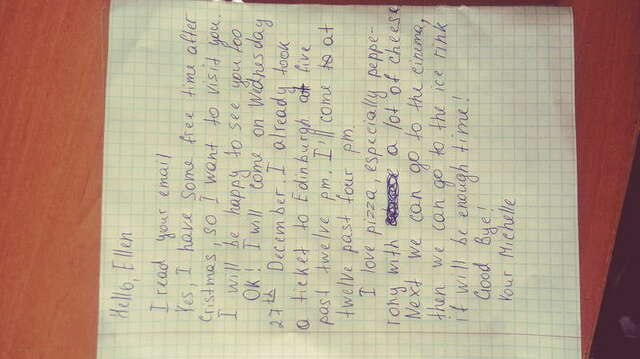 Hello, Ellen
I read your email
Yes, I have some free time after
Cristmas, so I want to visit you.
I will be happy to see you too
OK! I will come on Wednesday
27th December. I already took
a ticket to Edinburgh at five
past twelve pm. I'll come to at
twelve past four pm.
I love pizza, especially peppe-
rony with a lot of cheese
Next we can go to the cinema,
then we can go to the ice rink
if will be enough time!
Good Bye!
Your Michelle